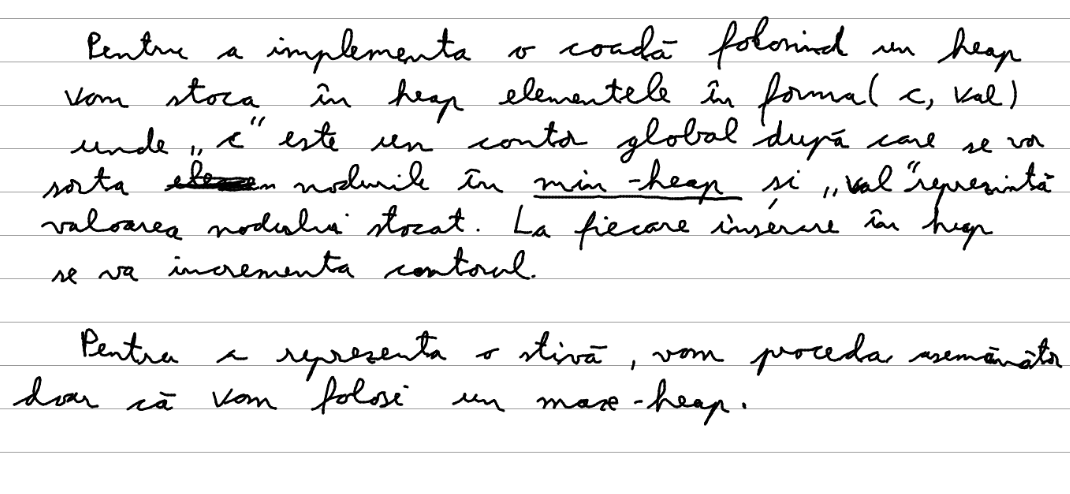 Pentru a implementa o coadă folosind un heap
vom stoca în heap elementele în forma (c, val)
unde „c" este un contor global după care se vor
sorta nodurile în min-heap și „val" reprezintă
valoarea nodului stocat. La fiecare inserare în heap
se va incrementa contorul.
Pentru a reprezenta o stivă, vom proceda asemănător
doar că vom folosi un max-heap.